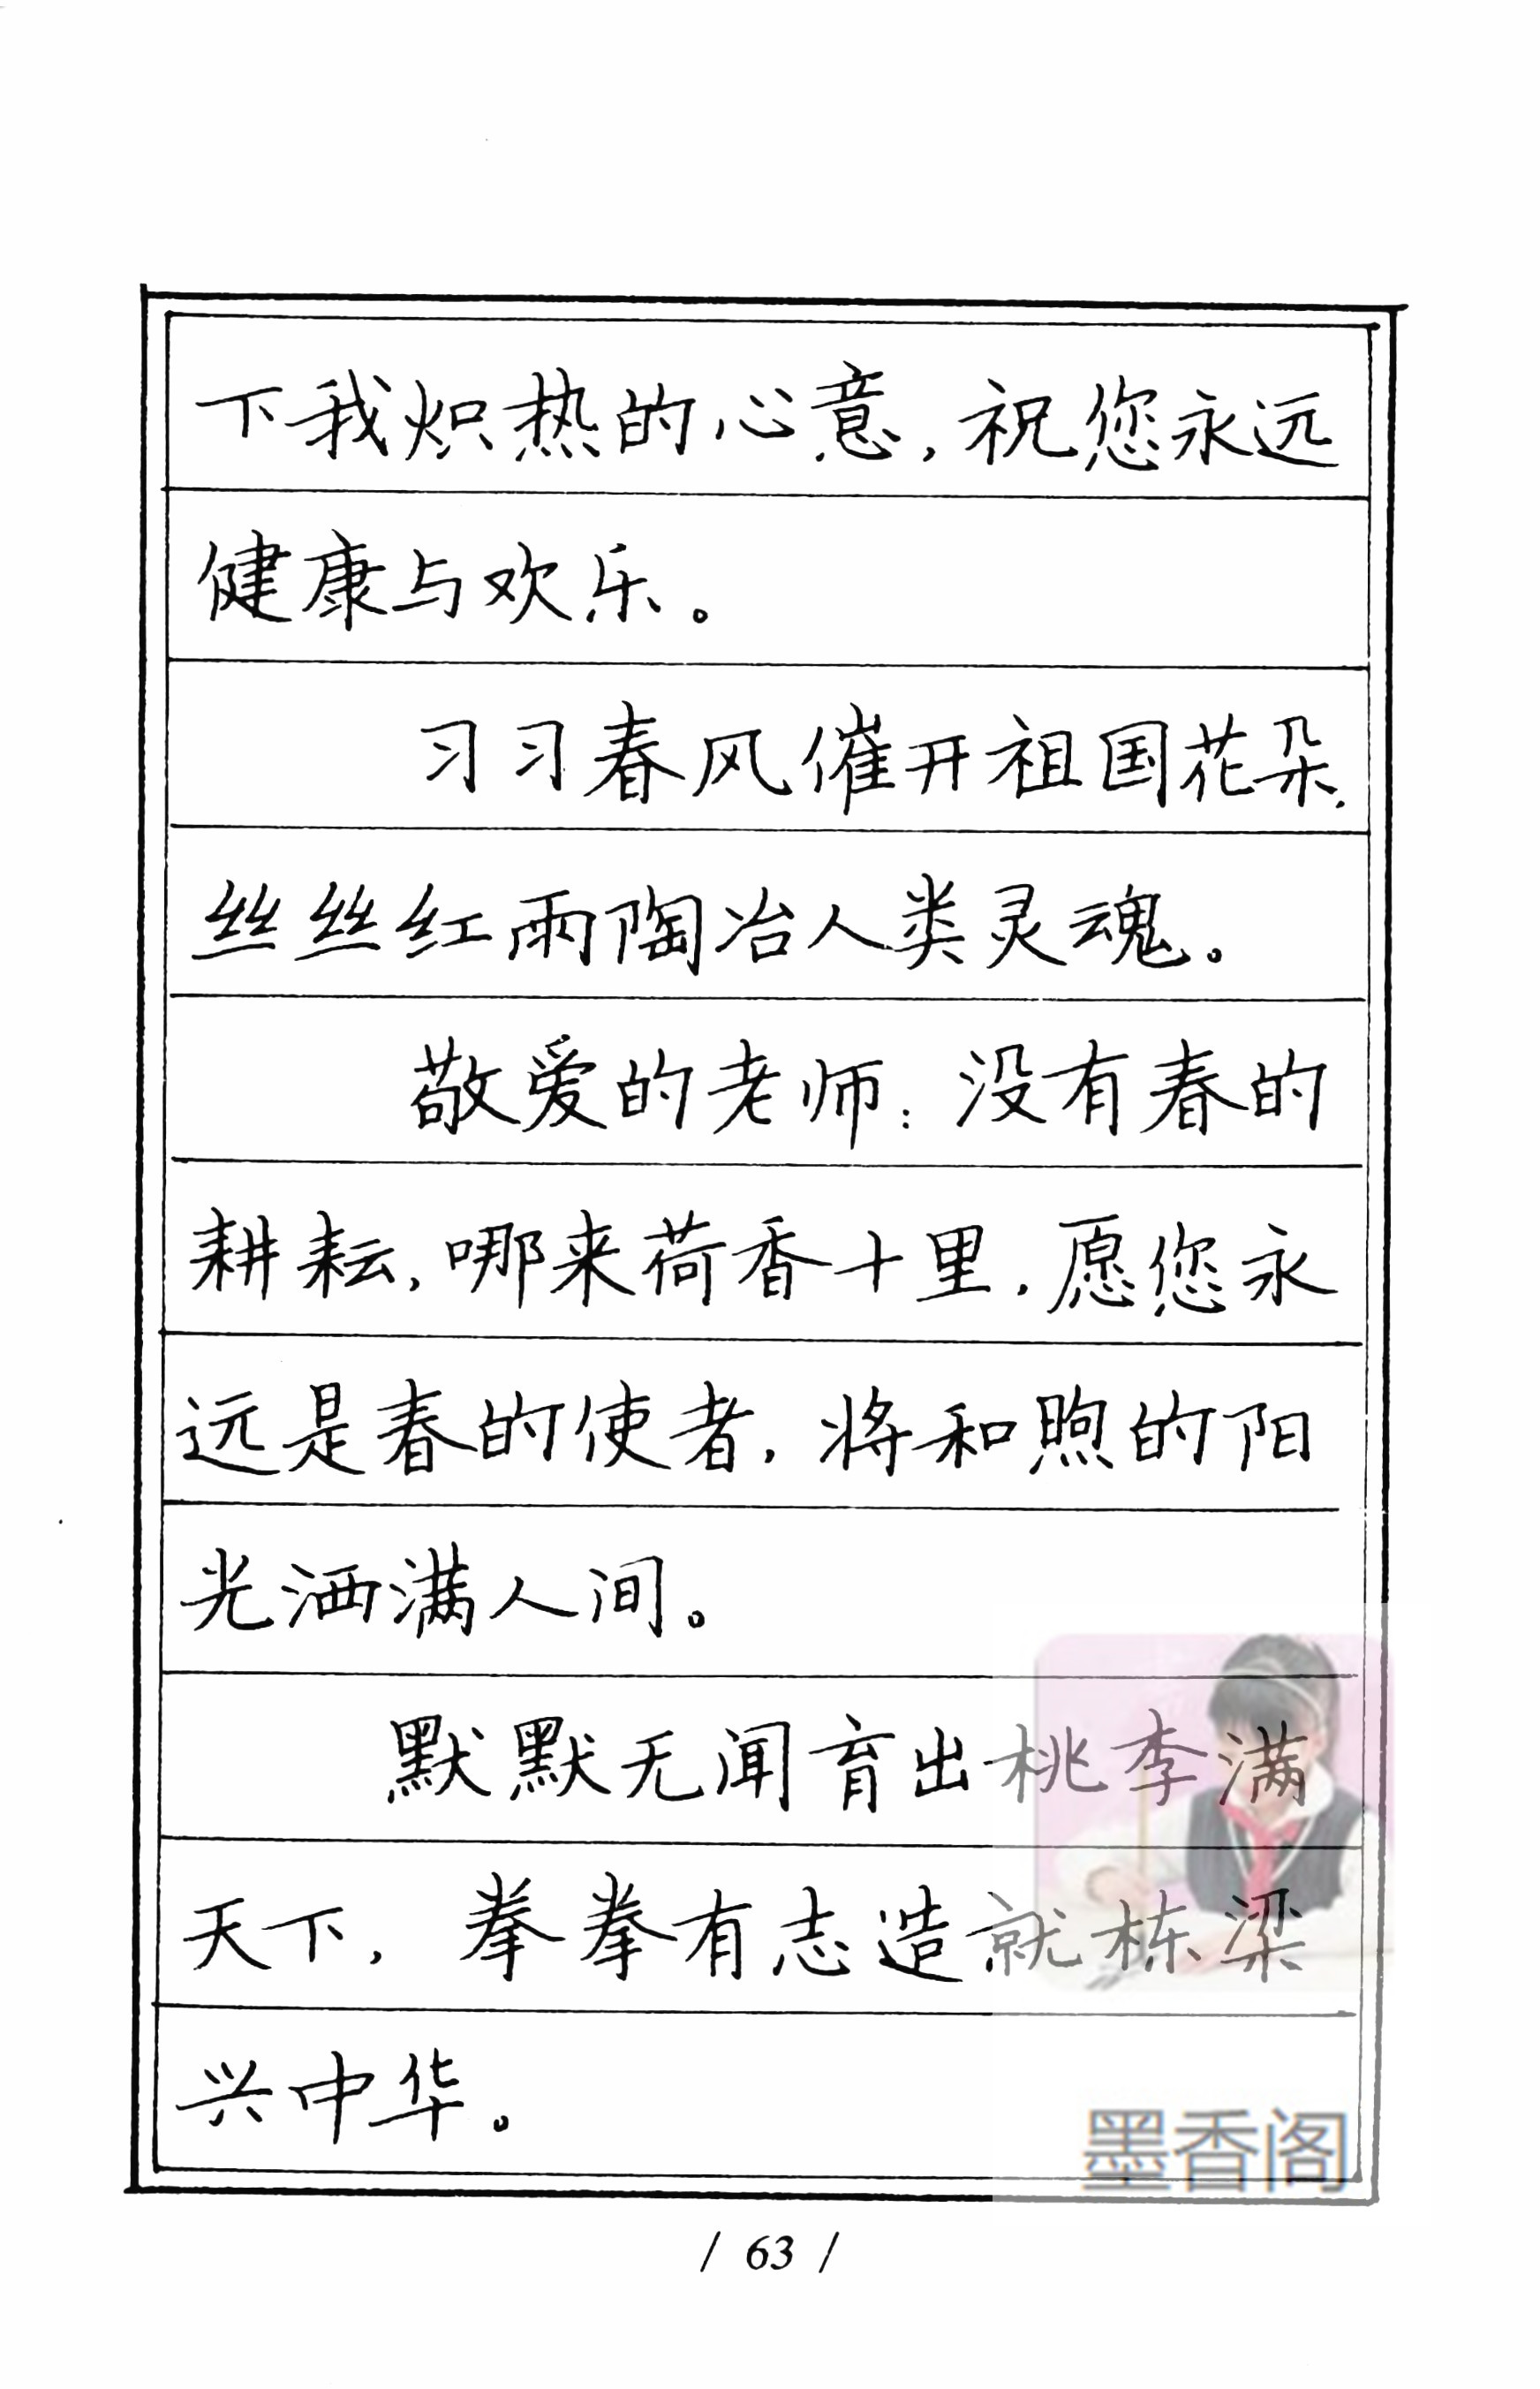 下我炽热的心意，祝您永远
健康与欢乐。
习习春风催开祖国花朵，
丝丝红雨陶冶人类灵魂。
敬爱的老师：没有春的
耕耘，哪来荷香十里，愿您永
远是春的使者，将和煦的阳
光洒满人间。
默默无闻育出桃李满
天下，拳拳有志造就栋梁
兴中华。
墨香阁
/ 63 /